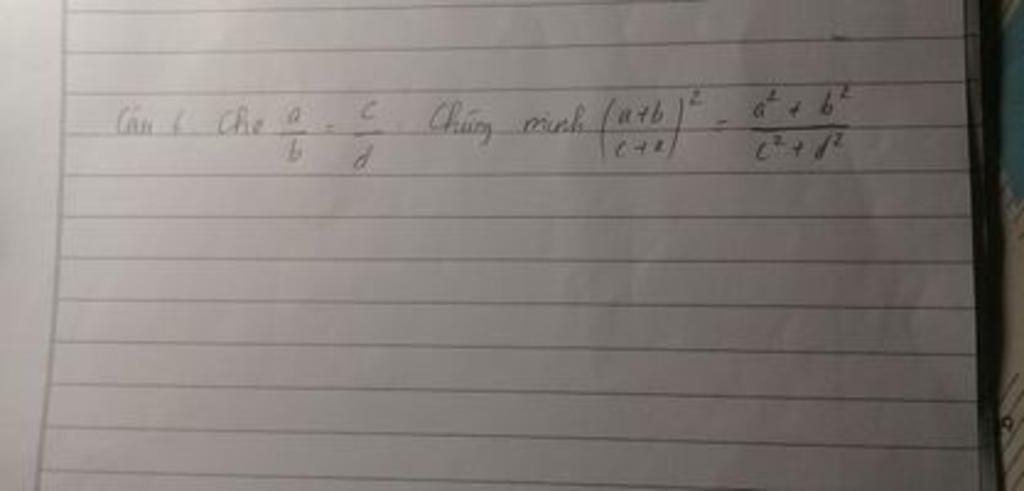 Câu 6. Cho a/b = c/d. Chứng minh ((a+b)/(c+d))² = (a² + b²)/(c² + d²)